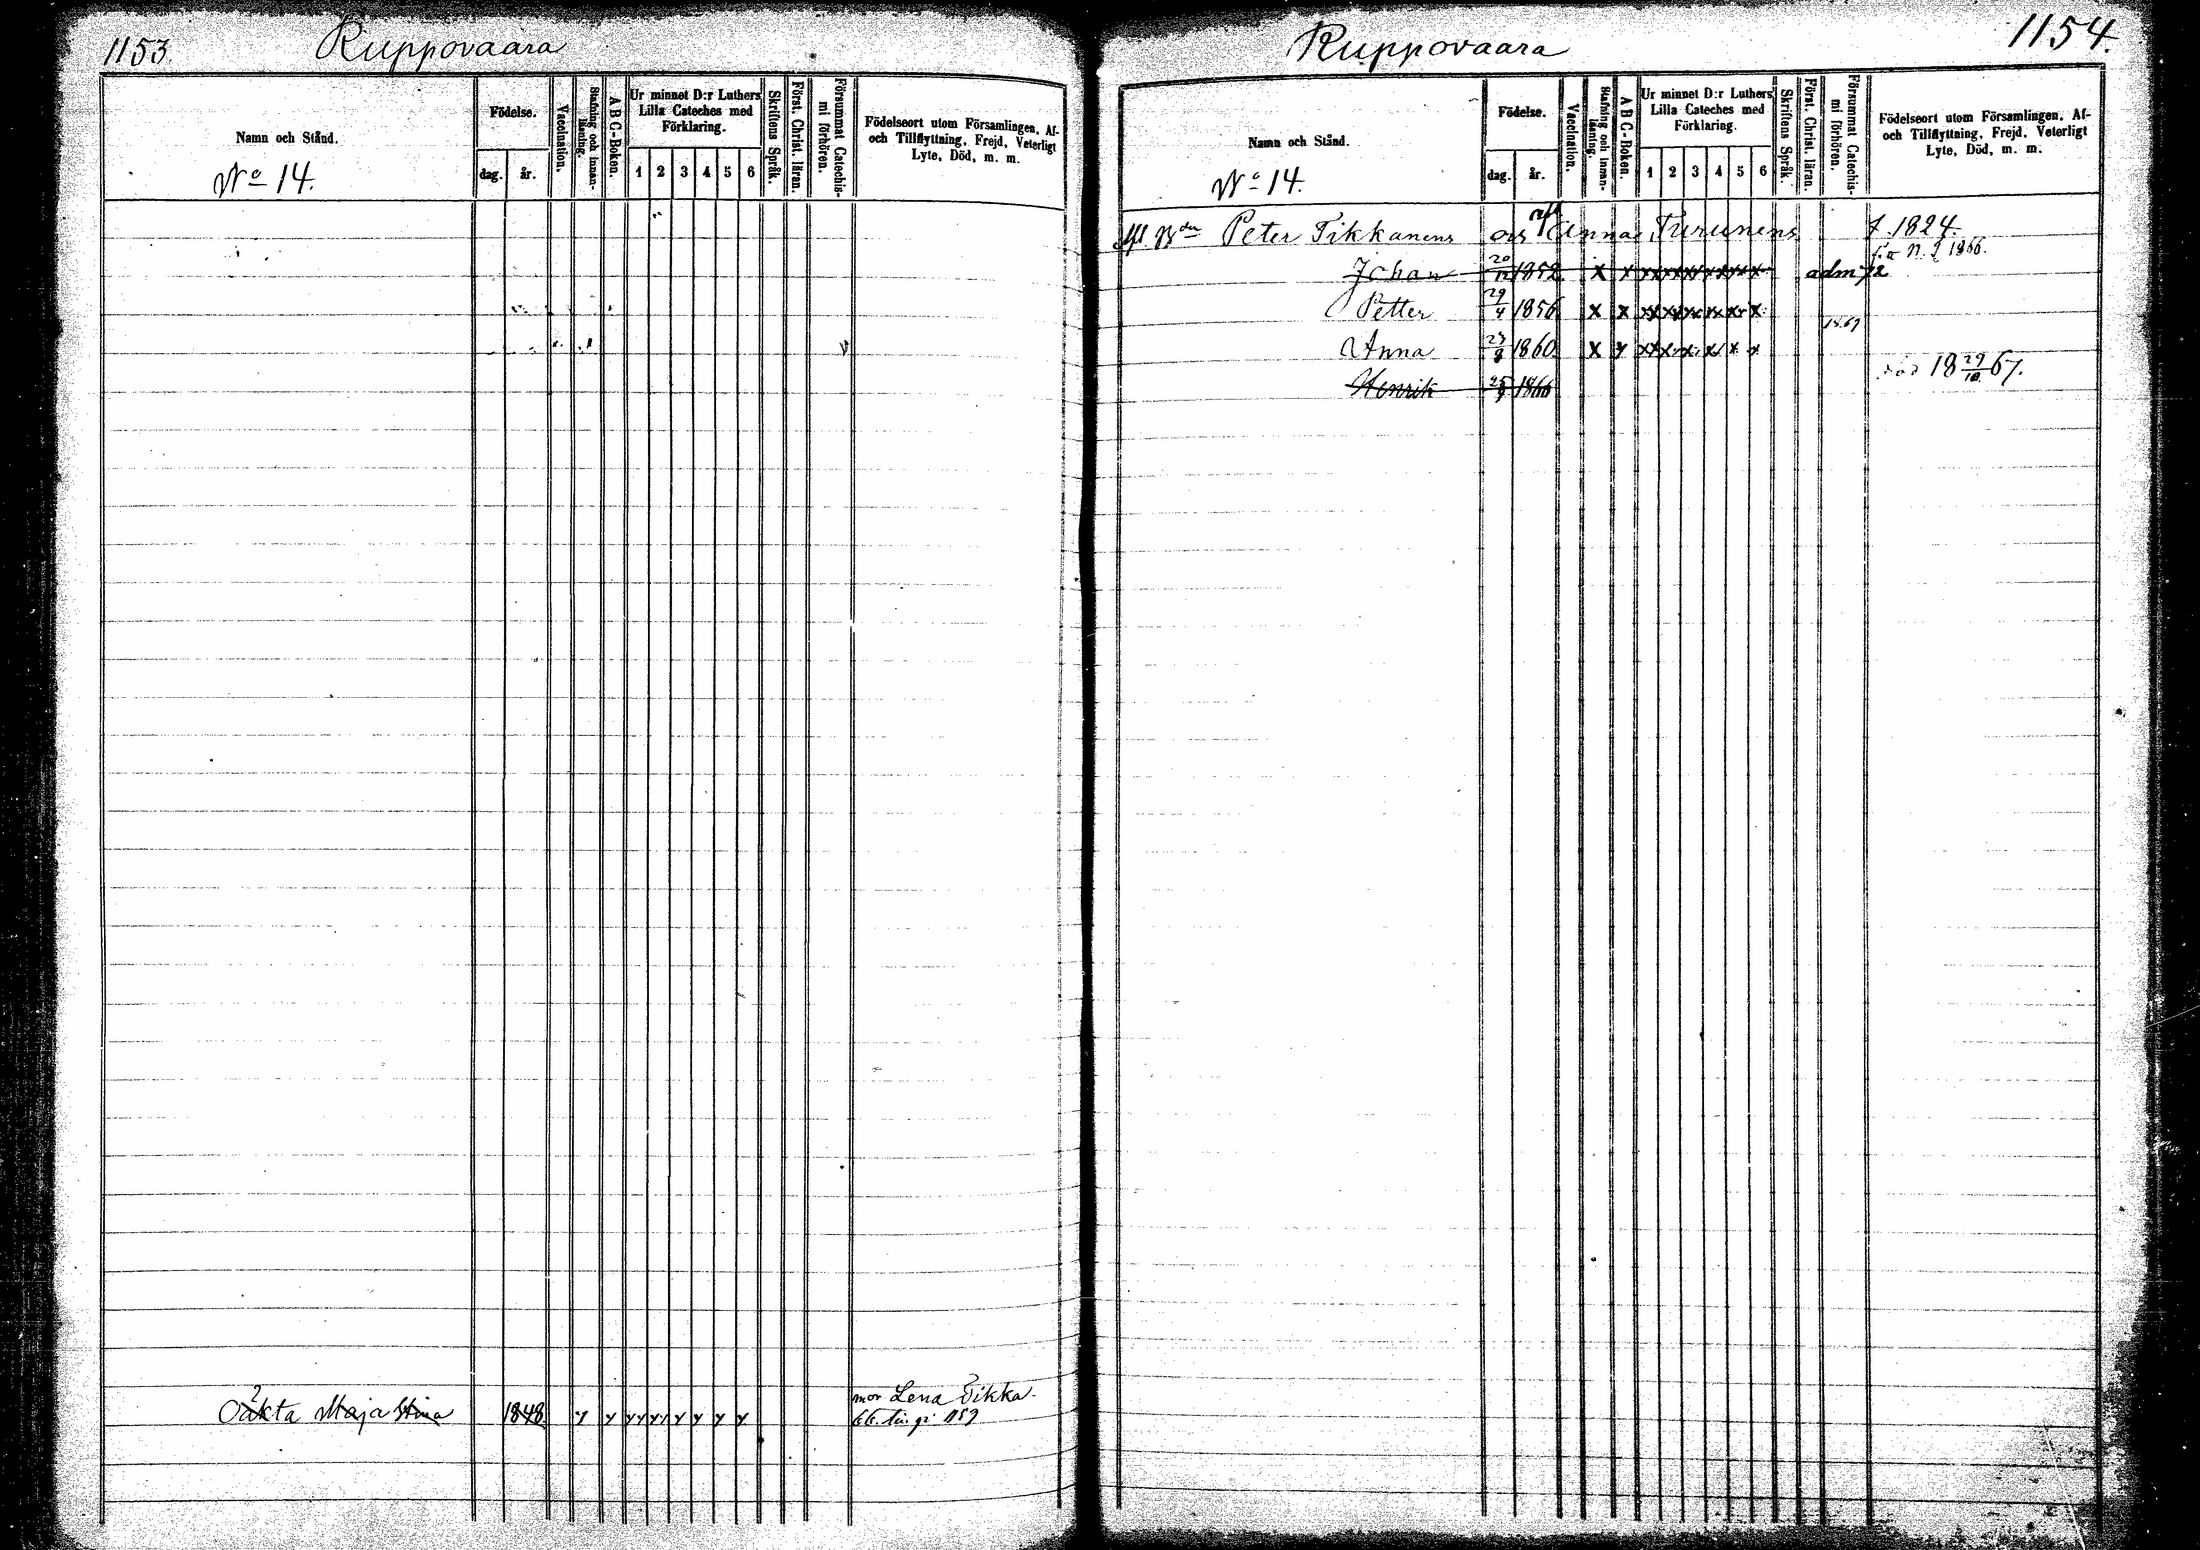 1153.
Ruppovaara
Namn och Stånd.
No 14.
Födelse.
dag.
år.
Vaccination.
Stafning och innan-
läsning.
A B C-Boken.
Ur minnet D:r Luthers
Lilla Cateches med
Förklaring.
1 2 3 4 5 6
Skriftens Språk.
Först. Christ. läran.
Försummat Catechis-
mi förhören.
Födelseort utom Församlingen, Af-
och Tillflyttning, Frejd, Veterligt
Lyte, Död, m. m.
mor Lena Tikka
Oäkta Maja Stina 1848 x x x x x x x x x x
1154.
Ruppovaara
Namn och Stånd.
No 14.
Födelse.
dag.
år.
Vaccination.
Stafning och innan-
läsning.
A B C-Boken.
Ur minnet D:r Luthers
Lilla Cateches med
Förklaring.
1 2 3 4 5 6
Skriftens Språk.
Först. Christ. läran.
Försummat Catechis-
mi förhören.
Födelseort utom Församlingen, Af-
och Tillflyttning, Frejd, Veterligt
Lyte, Död, m. m.
Peter Tikkanens och Anna Turunens f. 1824.
1866.
Johan 20/12 1852 x x x x x x x x adm 72
Petter 29/4 1856 x x x x x x x x
1869
Anna 1860 x x x x x x x x
Henrik 1866 död 18 29/10 67.